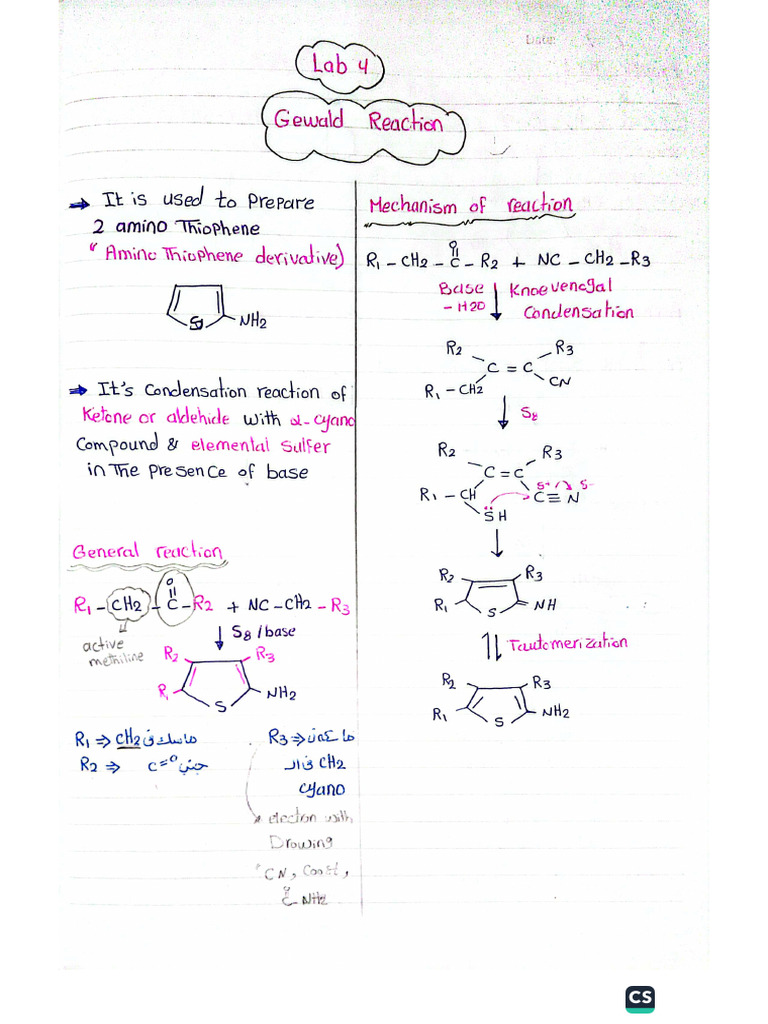 Date:
Lab 4
Gewald Reaction
→ It is used to Prepare
2 amino Thiophene
" Amino Thiophene derivative)
S
NH2
→ It's Condensation reaction of
Ketone or aldehide with α-cyano
Compound & elemental sulfer
in The presence of base
General reaction
O
R1 - CH2 - C - R2 + NC - CH2 - R3
active
methiline
↓ S8 / base
R2 R3
R S NH2
R1 ⇒ CH2 ماسك في
R2 ⇒ C=O جنب
R3 ⇒
CH2 في ال
cyano
electon with
Drowing
CN, Coo
O
C NH2
Mechanism of reaction
O
R1 - CH2 - C - R2 + NC - CH2 - R3
Base ↓ Knoevenegal
- H2O Condensation
R2 R3
C = C
R1 - CH2 CN
↓ S8
R2 R3
C = C
R1 - CH C ≡ N
δ+ δ-
SH
↓
R2 R3
R1 S NH
⇅ Tautomerization
R2 R3
R1 S NH2
CS